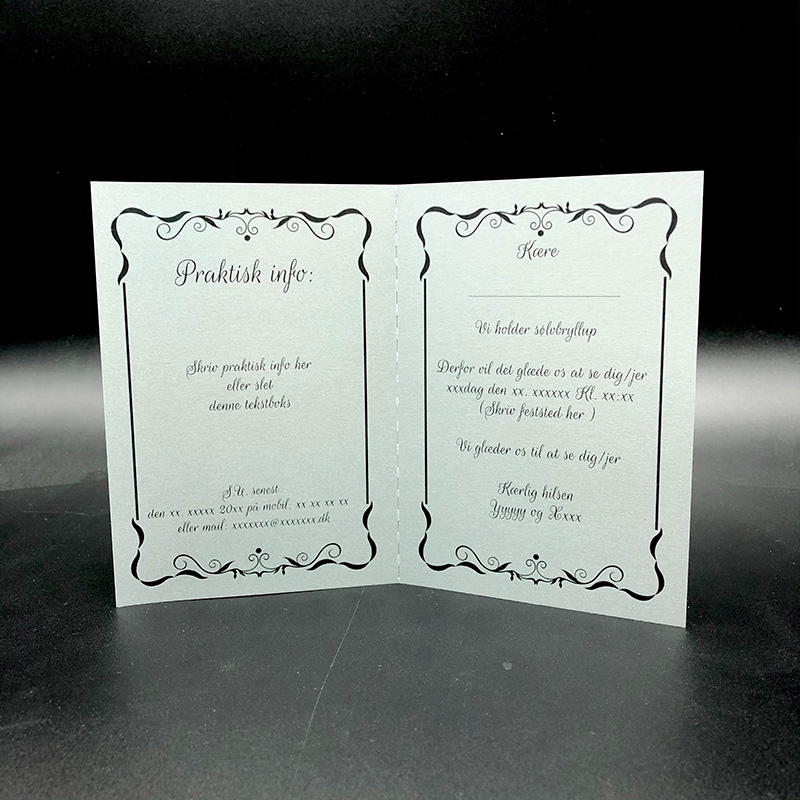 Praktisk info:
Skriv praktisk info her
eller slet
denne tekstboks
S.U. senest
den xx. xxxxx 20xx på mobil: xx xx xx xx
eller mail: xxxxxxx@xxxxxxx.dk
Kære
Vi holder sølvbryllup
Derfor vil det glæde os at se dig/jer
xxxdag den xx. xxxxxx Kl. xx:xx
(Skriv feststed her )
Vi glæder os til at se dig/jer
Kærlig hilsen
Yyyyy og Xxxx